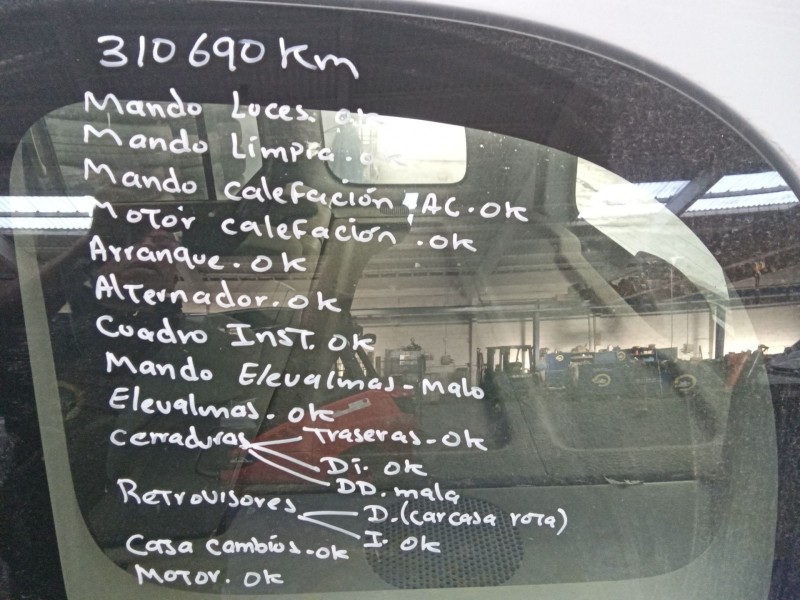 310690 Km
Mando Luces. ok
Mando Limpia. ok
Mando calefación AC. ok
Motor calefacion. ok
Arranque. ok
Alternador. ok
Cuadro Inst. ok
Mando Elevalmas - Malo
Elevalmas. ok
cerraduras Traseras - ok
DI. ok
DD. mala
Retrovisores D. (carcasa rota)
I. ok
Casa cambios - ok
Motor. ok